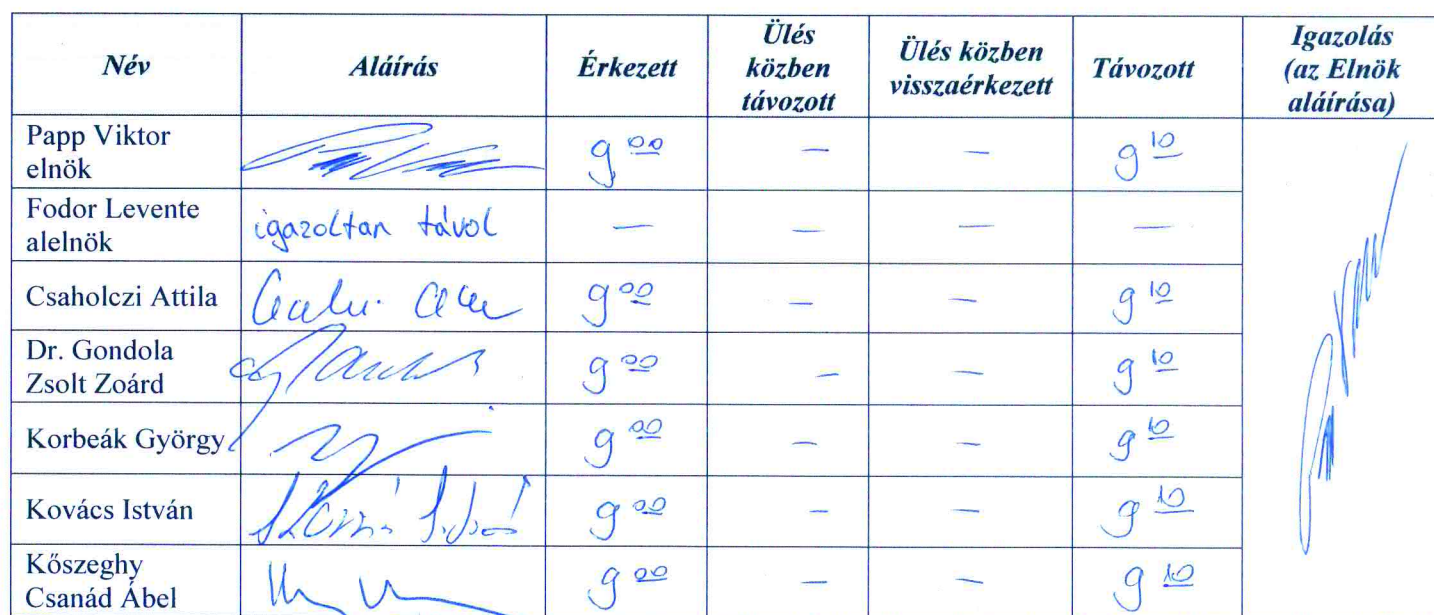 Név Aláírás Érkezett Ülés közben távozott Ülés közben visszaérkezett Távozott Igazolás (az Elnök aláírása)
Papp Viktor elnök 9 00 — — 9 10
Fodor Levente alelnök igazoltan távol — — — —
Csaholczi Attila 9 00 — — 9 10
Dr. Gondola Zsolt Zoárd 9 00 — — 9 10
Korbeák György 9 00 — — 9 10
Kovács István 9 00 — — 9 10
Kőszeghy Csanád Ábel 9 00 — — 9 10